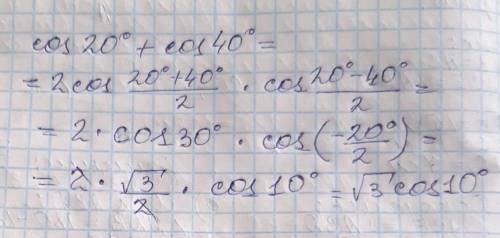 cos 20° + cos 40° =
= 2 cos (20° + 40°)/2 · cos (20° - 40°)/2 =
= 2 · cos 30° · cos (-20°/2) =
= 2 · √3/2 · cos 10° = √3 cos 10°